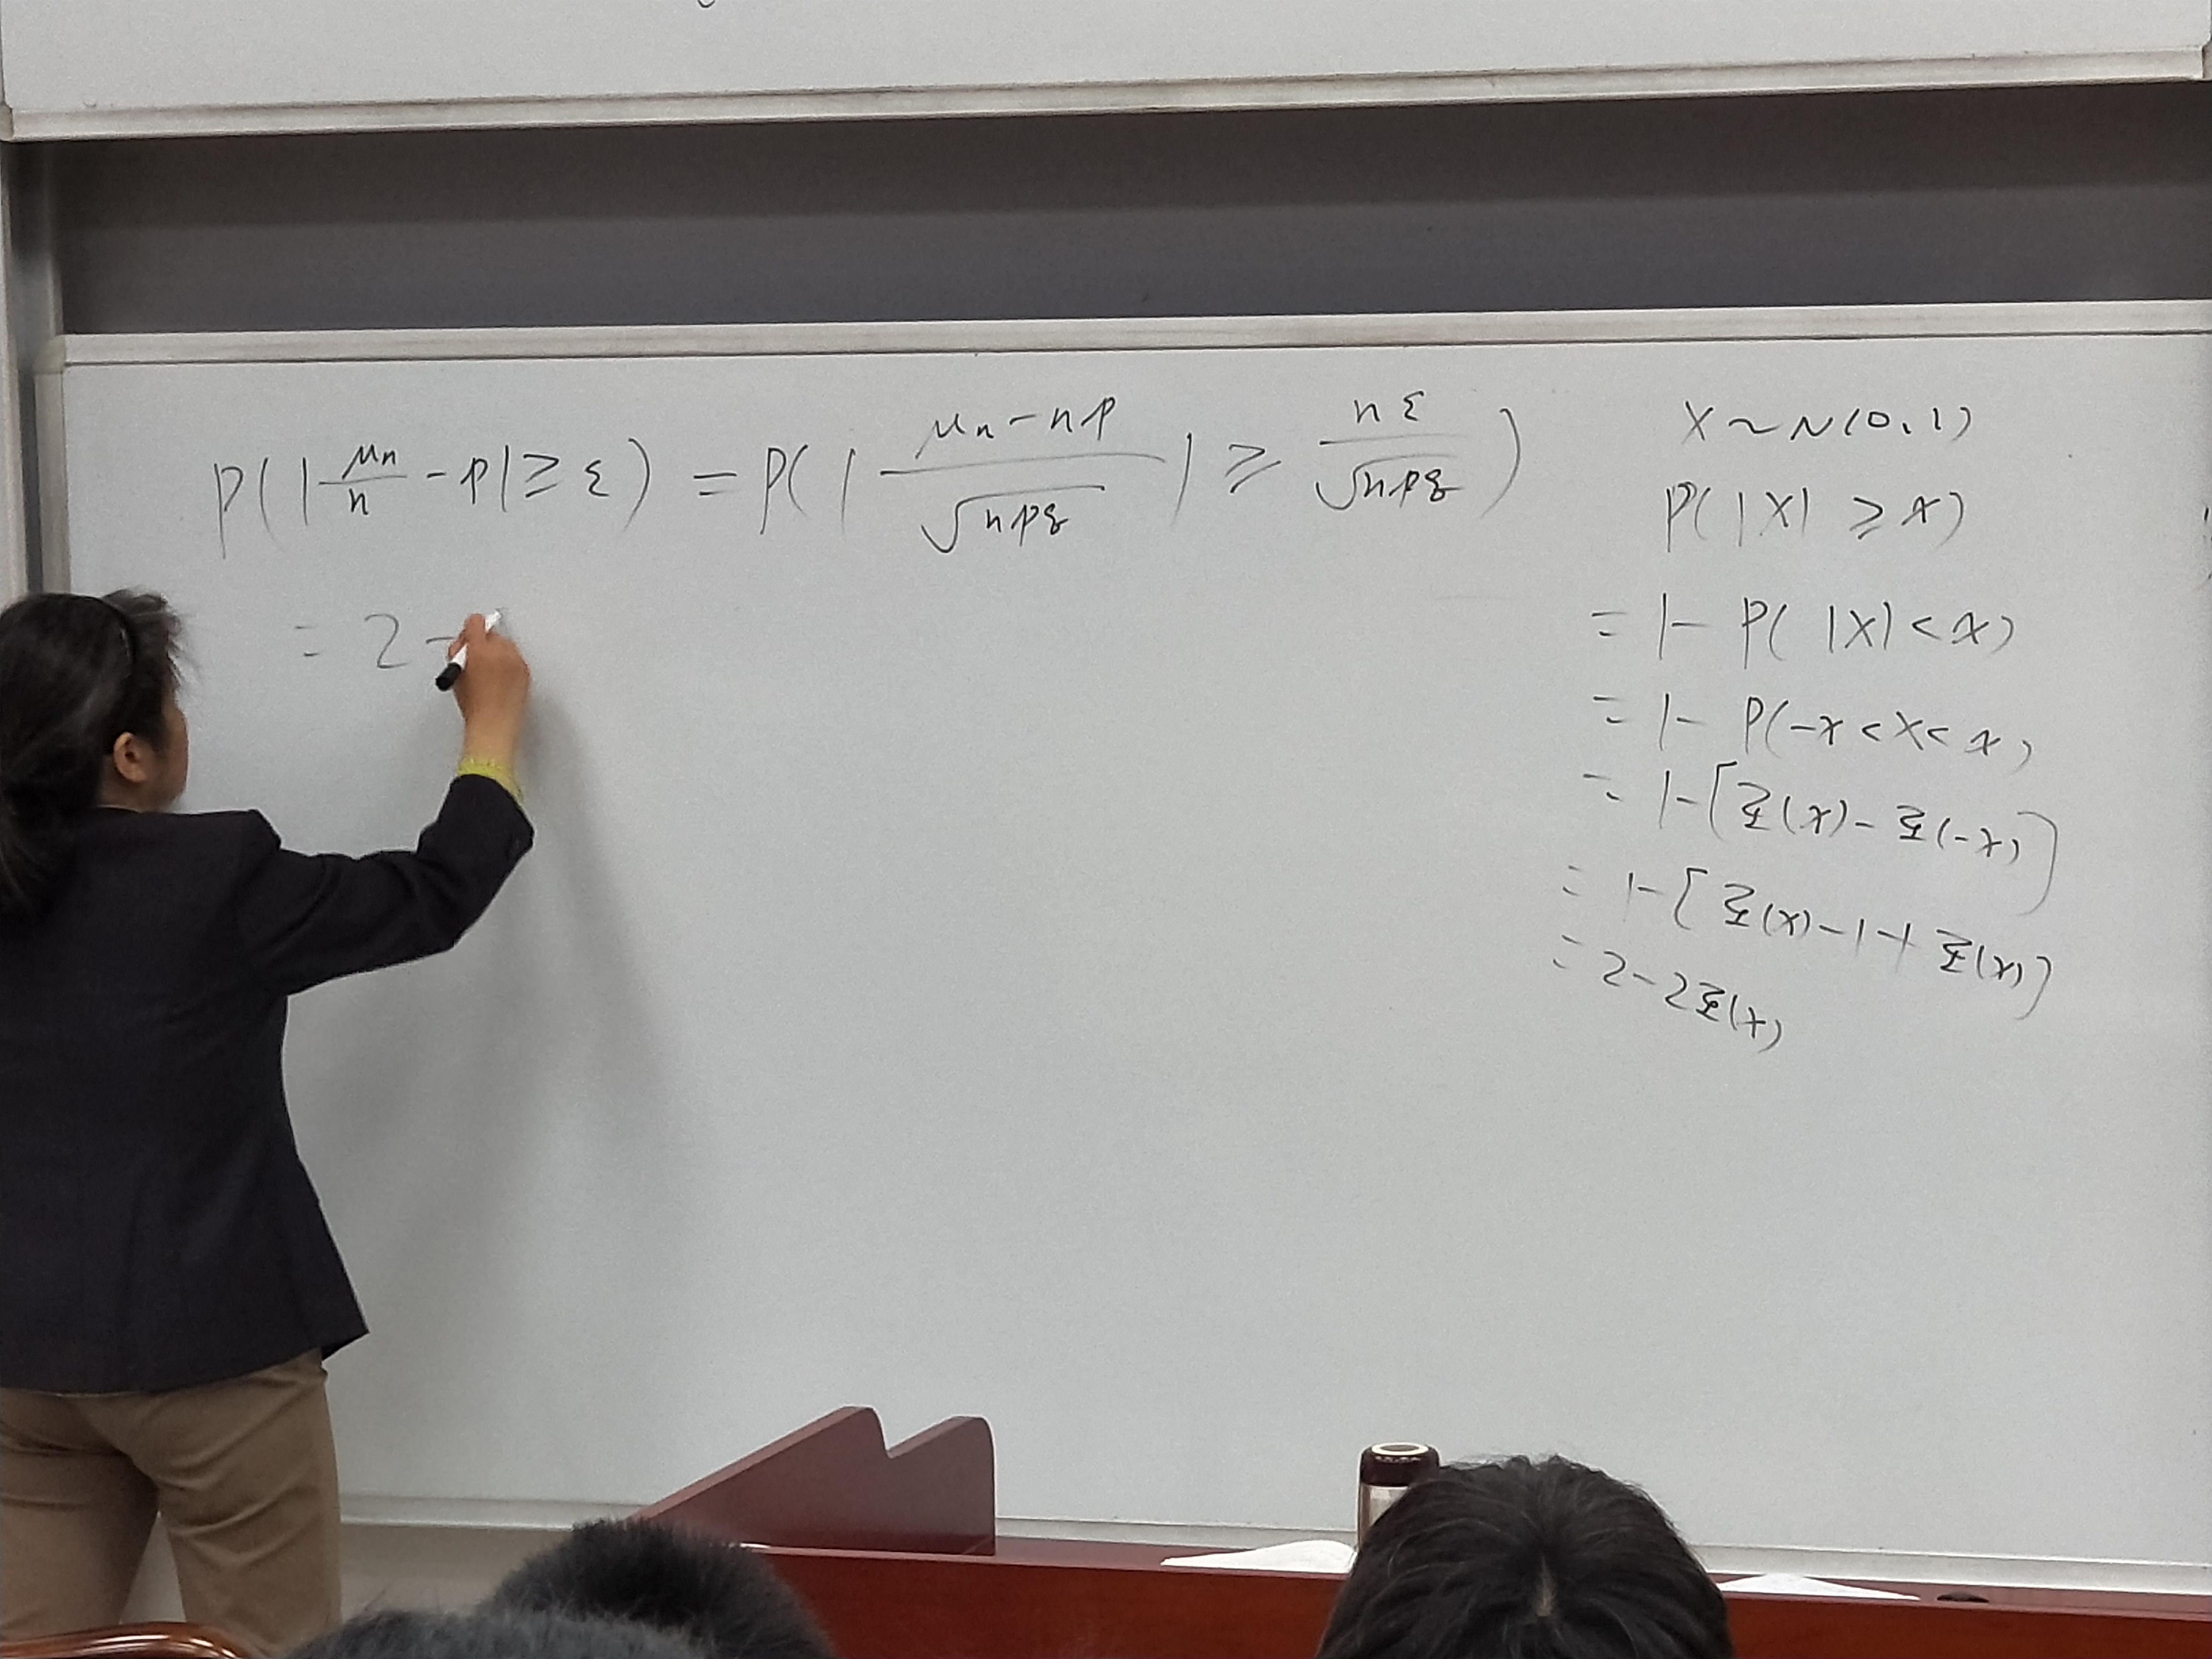 P(|μn/n - p| ≥ ε) = P(|(μn - np)/√npq| ≥ nε/√npq)
= 2 -
X ~ N(0,1)
P(|X| ≥ x)
= 1 - P(|X| < x)
= 1 - P(-x < X < x)
= 1 - [Φ(x) - Φ(-x)]
= 1 - [Φ(x) - 1 + Φ(x)]
= 2 - 2Φ(x)